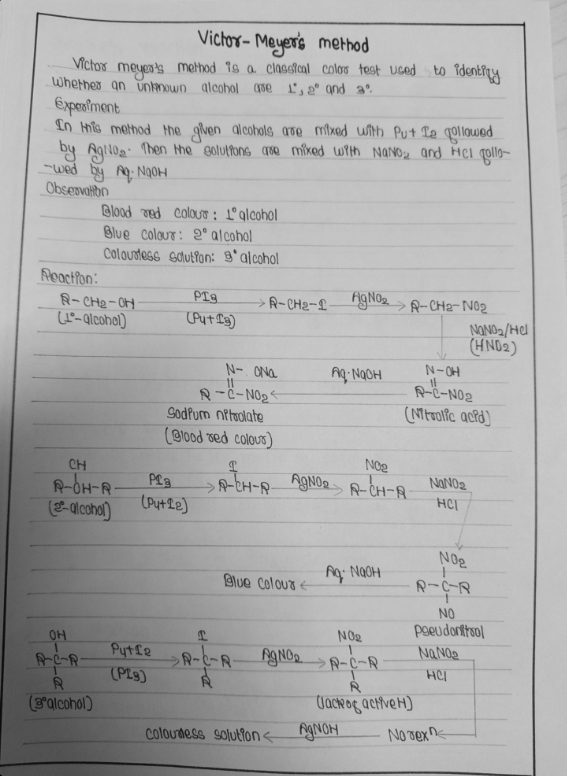 Victor-Meyer's method
Victor meyer's method is a classical color test used to identify
whether an unknown alcohol are 1°, 2° and 3°.
Experiment
In this method the given alcohols are mixed with Py+ I2 followed
by AgNO2. Then the solutions are mixed with NaNO2 and HCl follo-
-wed by Aq. NaOH
Observation
Blood red colour: 1° alcohol
Blue colour: 2° alcohol
Colourless solution: 3° alcohol
Reaction:
R-CH2-OH PI3 (Py+I3) → R-CH2-I AgNO2 → R-CH2-NO2
(1°-alcohol)
NaNO2/HCl
(HNO2)
N-. ONa Aq. NaOH N-OH
|| ||
R-C-NO2 ← R-C-NO2
Sodium nitrolate (Nitrolic acid)
(Blood red colour)
CH I NO2
R-OH-R PI3 → R-CH-R AgNO2 → R-CH-R NaNO2
(2°-alcohol) (Py+I2) HCl
NO2
|
Blue colour ← Aq. NaOH R-C-R
|
NO
Pseudonitrol
OH I NO2 NaNO2
R-C-R Py+I2 → R-C-R AgNO2 → R-C-R HCl
R (PI3) R R
(3°alcohol) (lack of active H)
Colourless solution ← AgNOH No rexn ←